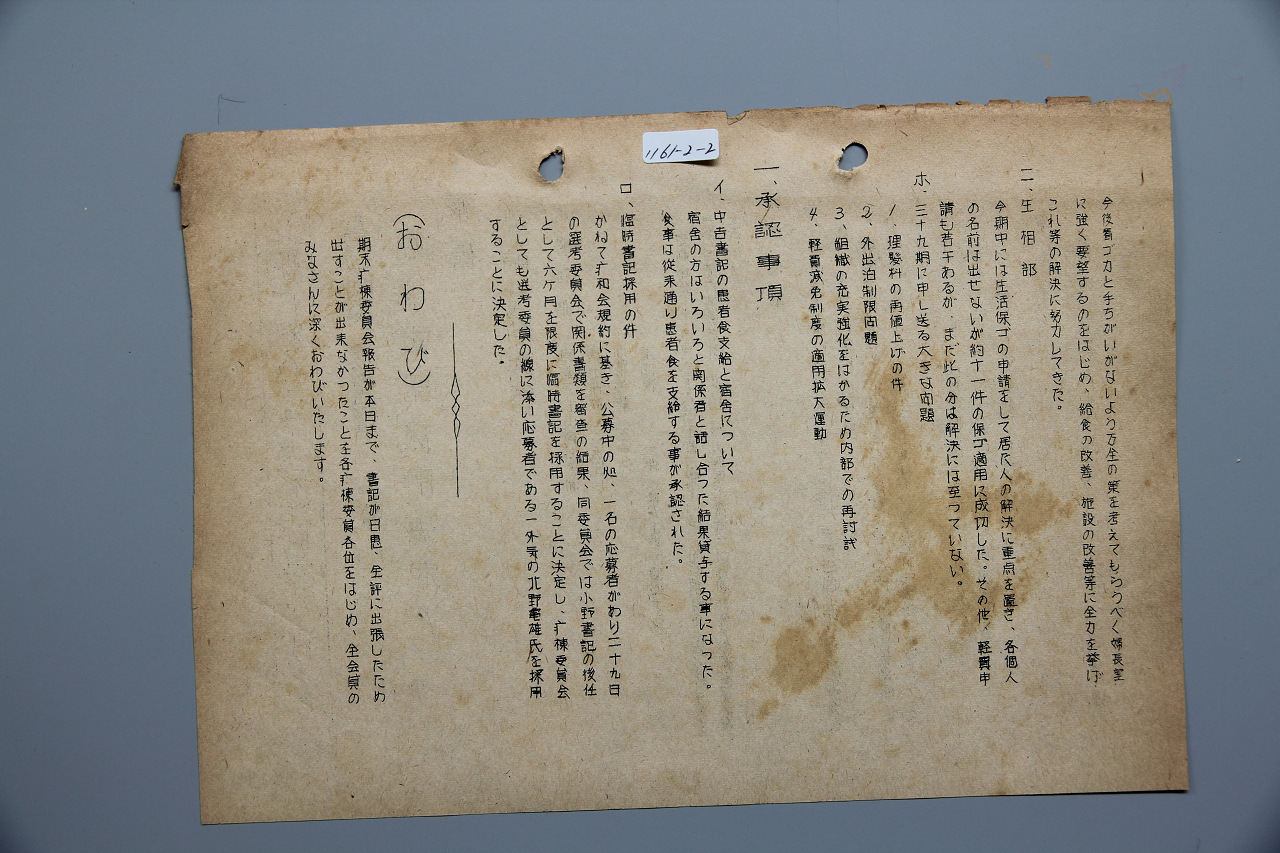 1161-2-2
今後看ゴ力と手ちがいがないよう万全の策を考えてもらうべく婦長室
に強く要望するのをはじめ、給食の改善、施設の改善等に全力を挙げ
これ等の解決に努力してきた。
二、生相部
今期中には生活保ゴの申請をして居た人の解決に重点を置き、各個人
の名前は出せないが約十一件の保ゴ適用に成功した。その他、軽費申
請も若干あるが、まだ此の分は解決には至っていない。
ホ、三十九期に申し送る大きな問題
1、理髪料の再値上げの件
2、外出泊制限問題
3、組織の充実強化をはかるため内部での再討議
4、軽費減免制度の適用拡大運動
一、承認事項
イ、中吉書記の患者食支給と宿舎について
宿舎の方はいろいろと関係者と話し合った結果貸与する事になった。
食事は従来通り患者食を支給する事が承認された。
ロ、臨時書記採用の件
かねて疒和会規約に基き、公募中の処、一名の応募者があり二十九日
の選考委員会で関係書類を審査の結果、同委員会では小野書記の後任
として六ケ月を限度に臨時書記を採用することに決定し、疒棟委員会
としても選考委員の線に添い応募者である一外気の北野亀雄氏を採用
することに決定した。
(おわび)
期末疒棟委員会報告が本日まで、書記が日患、全評に出張したため
出すことが出来なかったことを各疒棟委員各位をはじめ、全会員の
みなさんに深くおわびいたします。